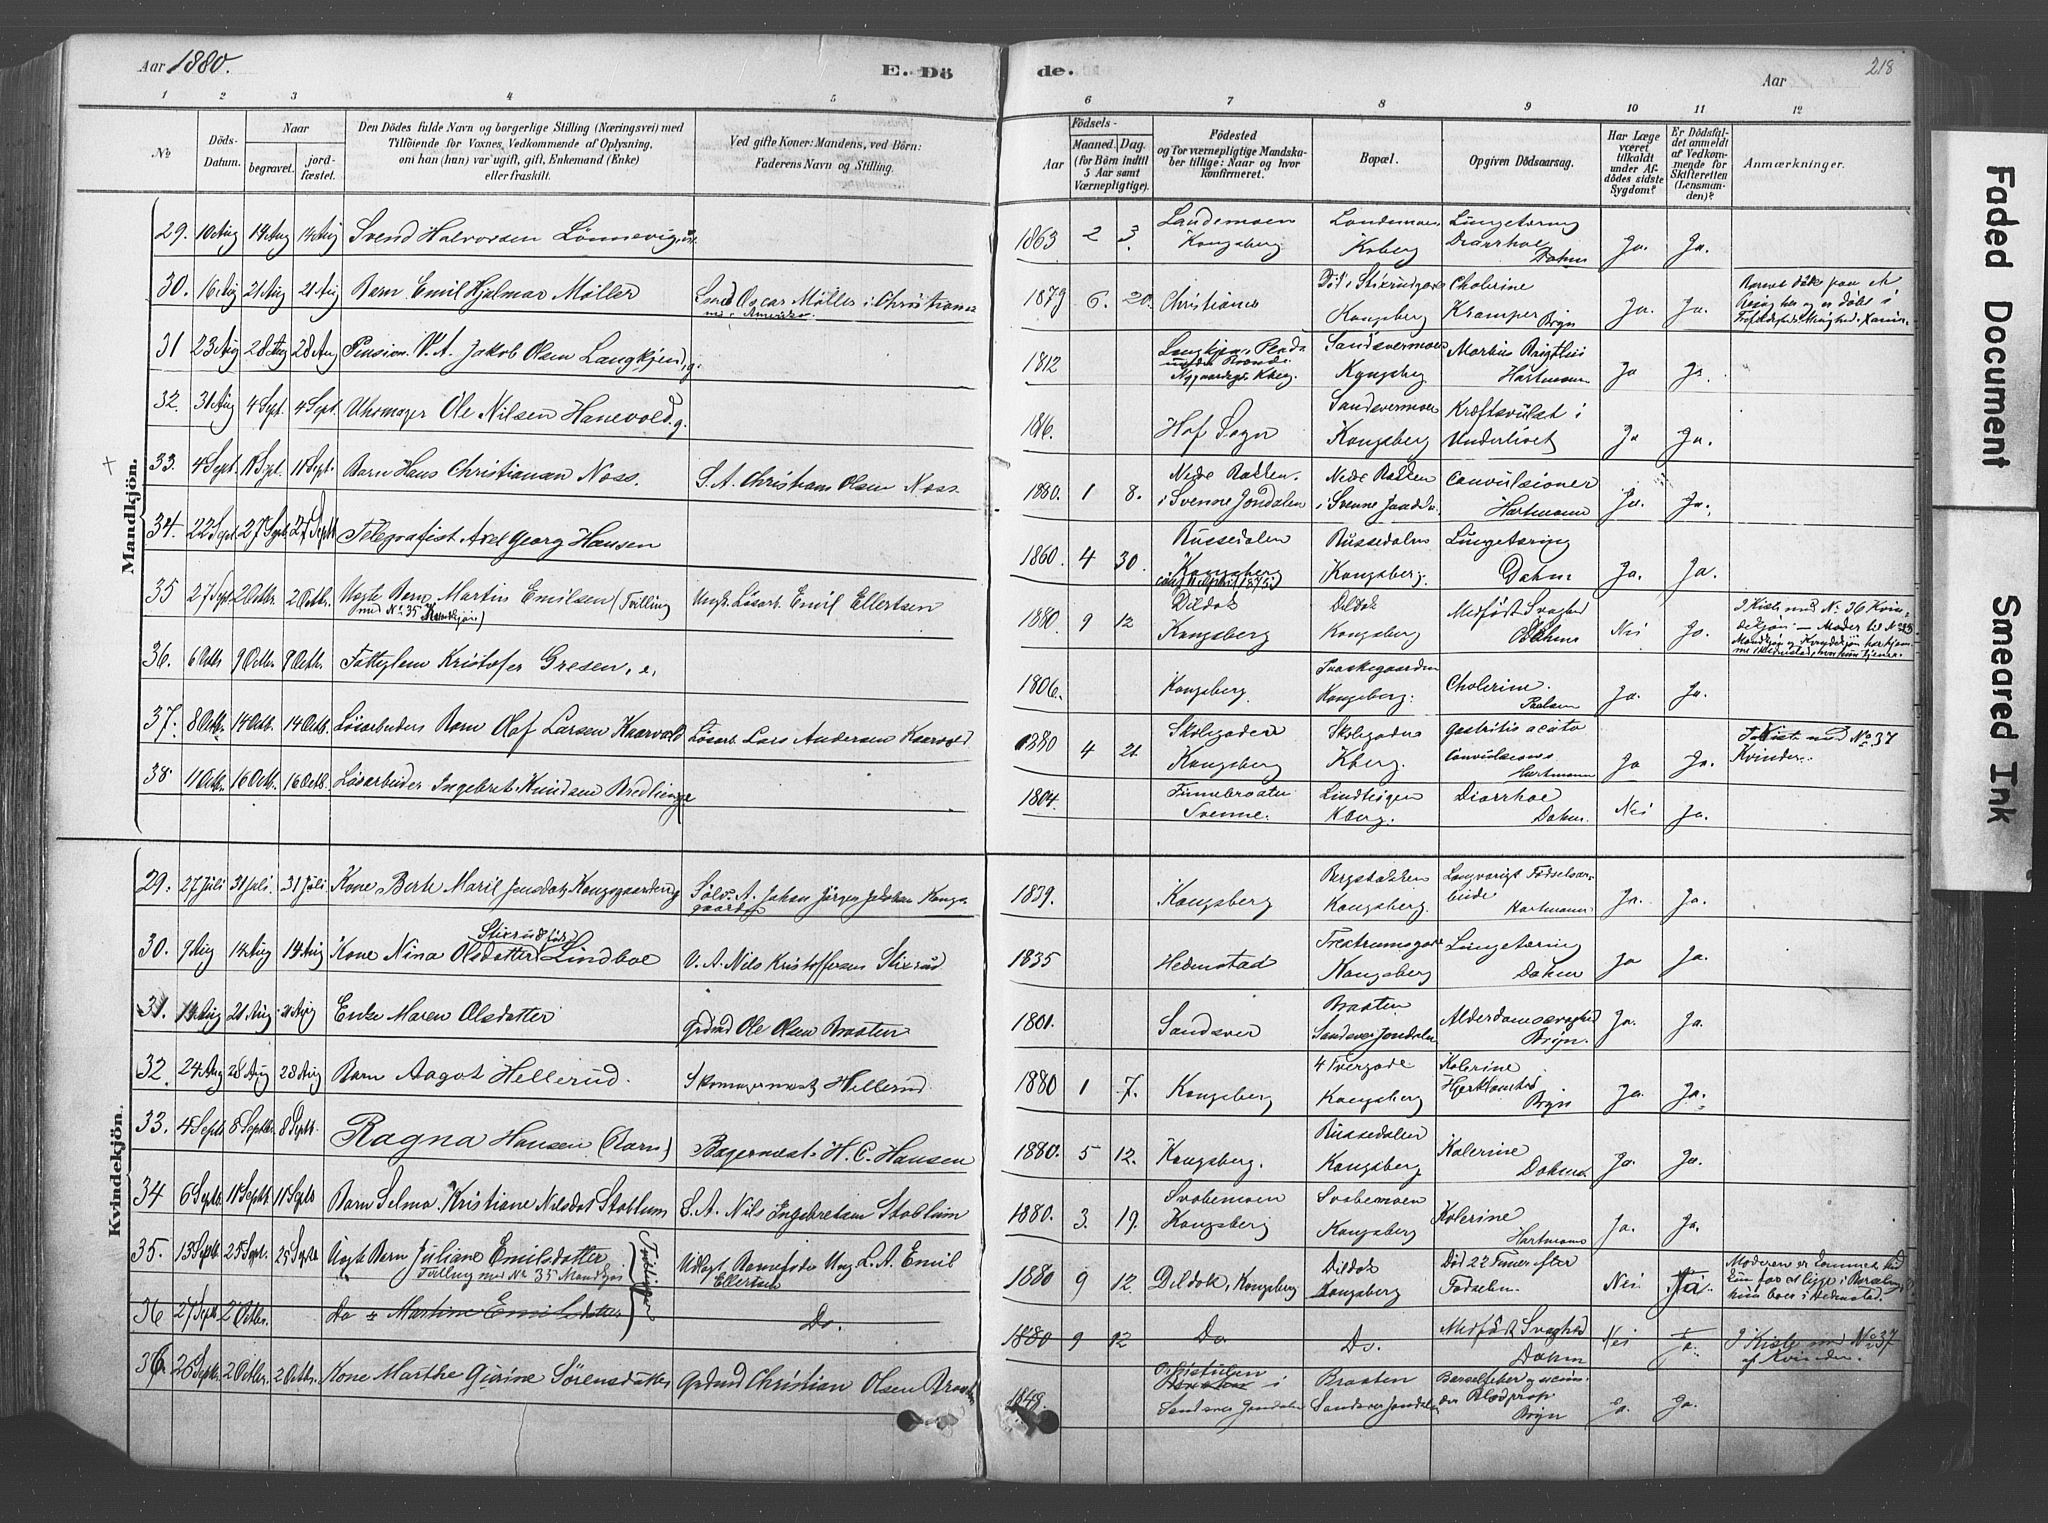 Aar 1880.
E. Dö
de.
Aar
218
1 2 3 4 5
6 7 8 9 10 11 12
No
Döds-Datum.
Naar
begravet.
jordfæstet.
Den Dödes fulde Navn og borgerlige Stilling (Næringsvei) med
Tilföiende for Voxnes Vedkommende af Oplysning,
om han (hun) var ugift, gift, Enkemand (Enke)
eller fraskilt.
Ved gifte Koner: Mandens, ved Börn:
Faderens Navn og Stilling.
Födsels-
Aar
Maaned. Dag.
(for Börn indtil
5 Aar samt
Værnepligtige).
Födested
og For værnepligtige Mandska-
ber tillige: Naar og hvor
konfirmeret.
Bopæl.
Opgiven Dödsaarsag.
Har Læge
været
tilkaldt
under Af-
dödes sidste
Sygdom?
Er Dödsfal-
det anmeldt
af Vedkom-
mende for
Skifteretten
(Lensman-
den)?
Anmærkninger.
Mandkjön.
29. 10 Aug 14 Aug 14 Aug Svend Halvorsen Lönnevig 1863 2 3. Landemoen Kongsberg Kberg Lungetæring Diarrhoe Dahm Ja. Ja.
30. 16 Aug 21 Aug 21 Aug Barn Emil Hjalmar Möller Smed Oscar Möller i Christiania i Amerika. 1879 6. 20. Christiania Kongsberg Cholerine Kramper Bryn Ja. Ja.
31 23 Aug 28 Aug 28 Aug Pension. V. A. Jakob Olsen Langkjend, g. 1812 Sandsvermoen Kongsberg Hartmann Ja Ja.
32. 31 Aug 4 Sept. 4 Sept. Uhrmager Ole Nilsen Hanevold. g. 1816. Hof Sogn Sandsvermoen Kongsberg Kræftsvulst i Underlivet Ja Ja.
33. 4 Sept. 11 Sept. 11 Sept. Barn Hans Christiansen Noss. S. A. Christian Olsen Noss. 1880. 1 8. Nedre Bakken i Svenne Jondalen Nedre Bakken i Svenne Convulsioner Hartmann Ja. Ja.
34. 22 Sept 27 Sept 27 Sept Telegrafist Axel Georg Hansen 1860 4 30. Russedalen Kongsberg Russedalen Kongsberg. Lungetæring Dahm Ja. Ja.
35 27 Sept 2 Octbr. 2 Octbr. Uægte Barn Martin Emilsen (Tvilling med No 35 Kvindkjön) Ungk. Løsarb. Emil Ellertsen 1880. 9 12 Dildok Kongsberg Dildok Kongsberg Medfödt Svaghed Dahm Nei Ja. I Kiste med No 36 Kvindekjön
36. 6 Octb 9 Octbr. 9 Octbr. Fattiglem Kristofer Gresen, e, 1806. Kongsberg. Kongsberg. Cholerine. Paulsen Ja. Ja.
37. 8 Octb. 14 Octb. 14 Octb. Løsarbeiders Barn Olaf Larsen Kaarvold Løsarb. Lars Andersen Kaarvold 1880 4 21. Skolegaden Kongsberg Skolegaden Kberg. Gastritis acuta Convulsions Hartmann Ja Ja. I Kiste med No 37 Kvinder.
38. 11 Octb. 16 Octb. 16 Octb. Løsarbeider Ingebret Knudsen 1804. Finnebraaten Svenne. Lindteigen Kberg. Diarrhoe Dahm. Nei Ja.
Kvindekjön.
29. 27 Juli 31 Juli 31 Juli Kone Berte Marie Jensdatr. Kongsgaarden Sølv. A. Johan Jörgen Jakobsen Kongsgaarden 1839. Kongsberg Bergstokken Kongsberg. Langvarigt Födselsarbeide Hartmann Ja. Ja.
30. 9 Aug 14 Aug 14 Aug Kone Nina Olsdatter Stixrud föd Lindboe V. A. Nils Kristoffersen Stixrud 1835 Hedenstad Kongsberg Lungetæring Dahm Ja Ja.
31. 14 Aug 21 Aug 21 Aug Enke Maren Olsdatter Grdmd Ole Olsen Braaten 1801. Sandsver Braaten Sandsver Jondalen Alderdomssvaghed Bryn. Ja. Ja.
32. 24 Aug 28 Aug 28 Aug Barn Aagot Hellerud. Skomagermester Hellerud 1880 1 7. Kongsberg 4 Tvergade Kongsberg Kolerine Bryn Ja. Ja.
33. 4 Septb 8 Septbr. 8 Septb. Ragna Hansen (Barn) Bagermest. H. C. Hansen 1880. 5 12. Kongsberg. Russedalen Kongsberg Kolerine Dahm Ja. Ja.
34 6 Septb 11 Septb 11 Septb Barn Selma Kristiane Nilsdat. Stablum S. A. Nils Ingebretsen Stablum 1880. 3. 19. Svabemoen Kongsberg Svabemoen Kongsberg Kolerine Hartmann Ja. Ja.
35. 13 Septb 25 Sept. 25 Septb Uægte Barn Juliane Emilsdatter Tvilling med No 35 Mandkjön Tvillinger Udlagt Barnefader Ung. L. A. Emil Ellertsen 1880 9 12. Dildok, Kongsberg Dildok Kongsberg Död 22 Timer efter Födselen. Nei Ja Moderen er kommet hid kun for at ligge i Barselseng, hun boer i Hedenstad.
36 27 Septb 2 Octbr. Do Martine Emilsdatter Do. 1880 9 12 Do Do. Medfödt Svaghed Dahm Nei Ja. I Kiste med No 37 af Kvinder.
36. 26 Septb. 2 Octbr. 2 Octbr. Kone Marthe Gurine Sörensdatter Grdmd Christian Olsen Braaten 1848. Sandsver Jondalen Braaten Sandsver Jondalen Barselfeber Blodprop Bryn Ja. Ja.
Faded Document
Smeared Ink